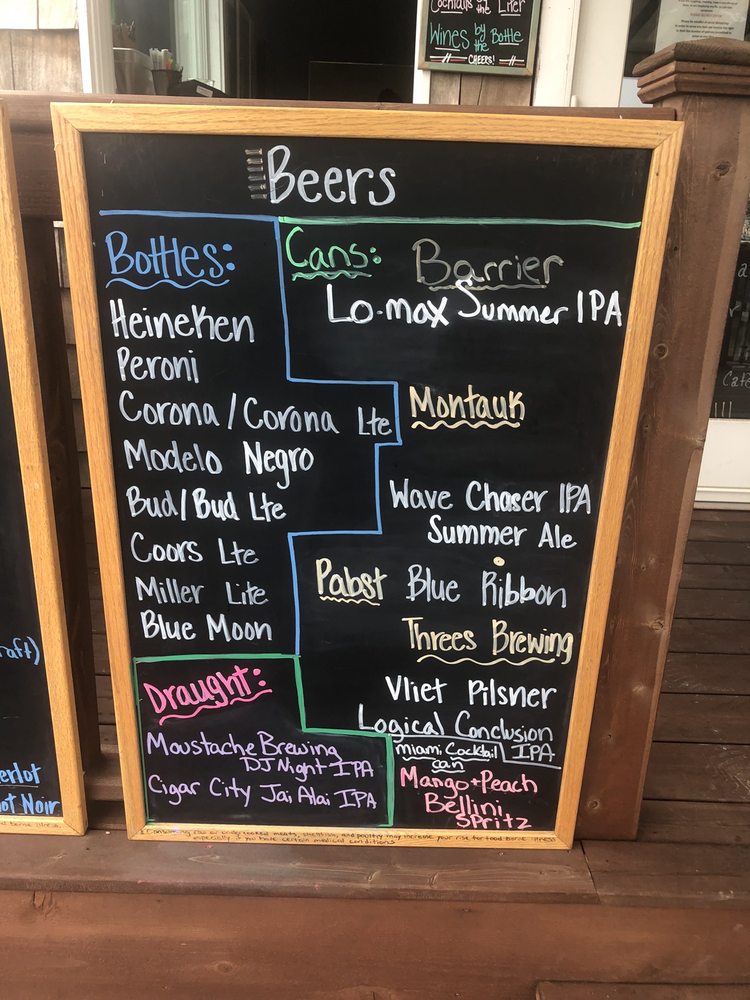 Cocktails by the Liter
Wines by the Bottle
CHEERS!
Beers
Bottles:
Heineken
Peroni
Corona/Corona Lte
Modelo Negro
Bud/Bud Lte
Coors Lte
Miller Lite
Blue Moon
Cans:
Barrier
Lo·max Summer IPA
Montauk
Wave Chaser IPA
Summer Ale
Pabst Blue Ribbon
Threes Brewing
Vliet Pilsner
Logical Conclusion
IPA
miami Cocktail
can
Mango+Peach
Bellini
Spritz
Draught:
Moustache Brewing
DJ Night IPA
Cigar City Jai Alai IPA
especially if you have certain medical conditions
raft)
erlot
ot Noir